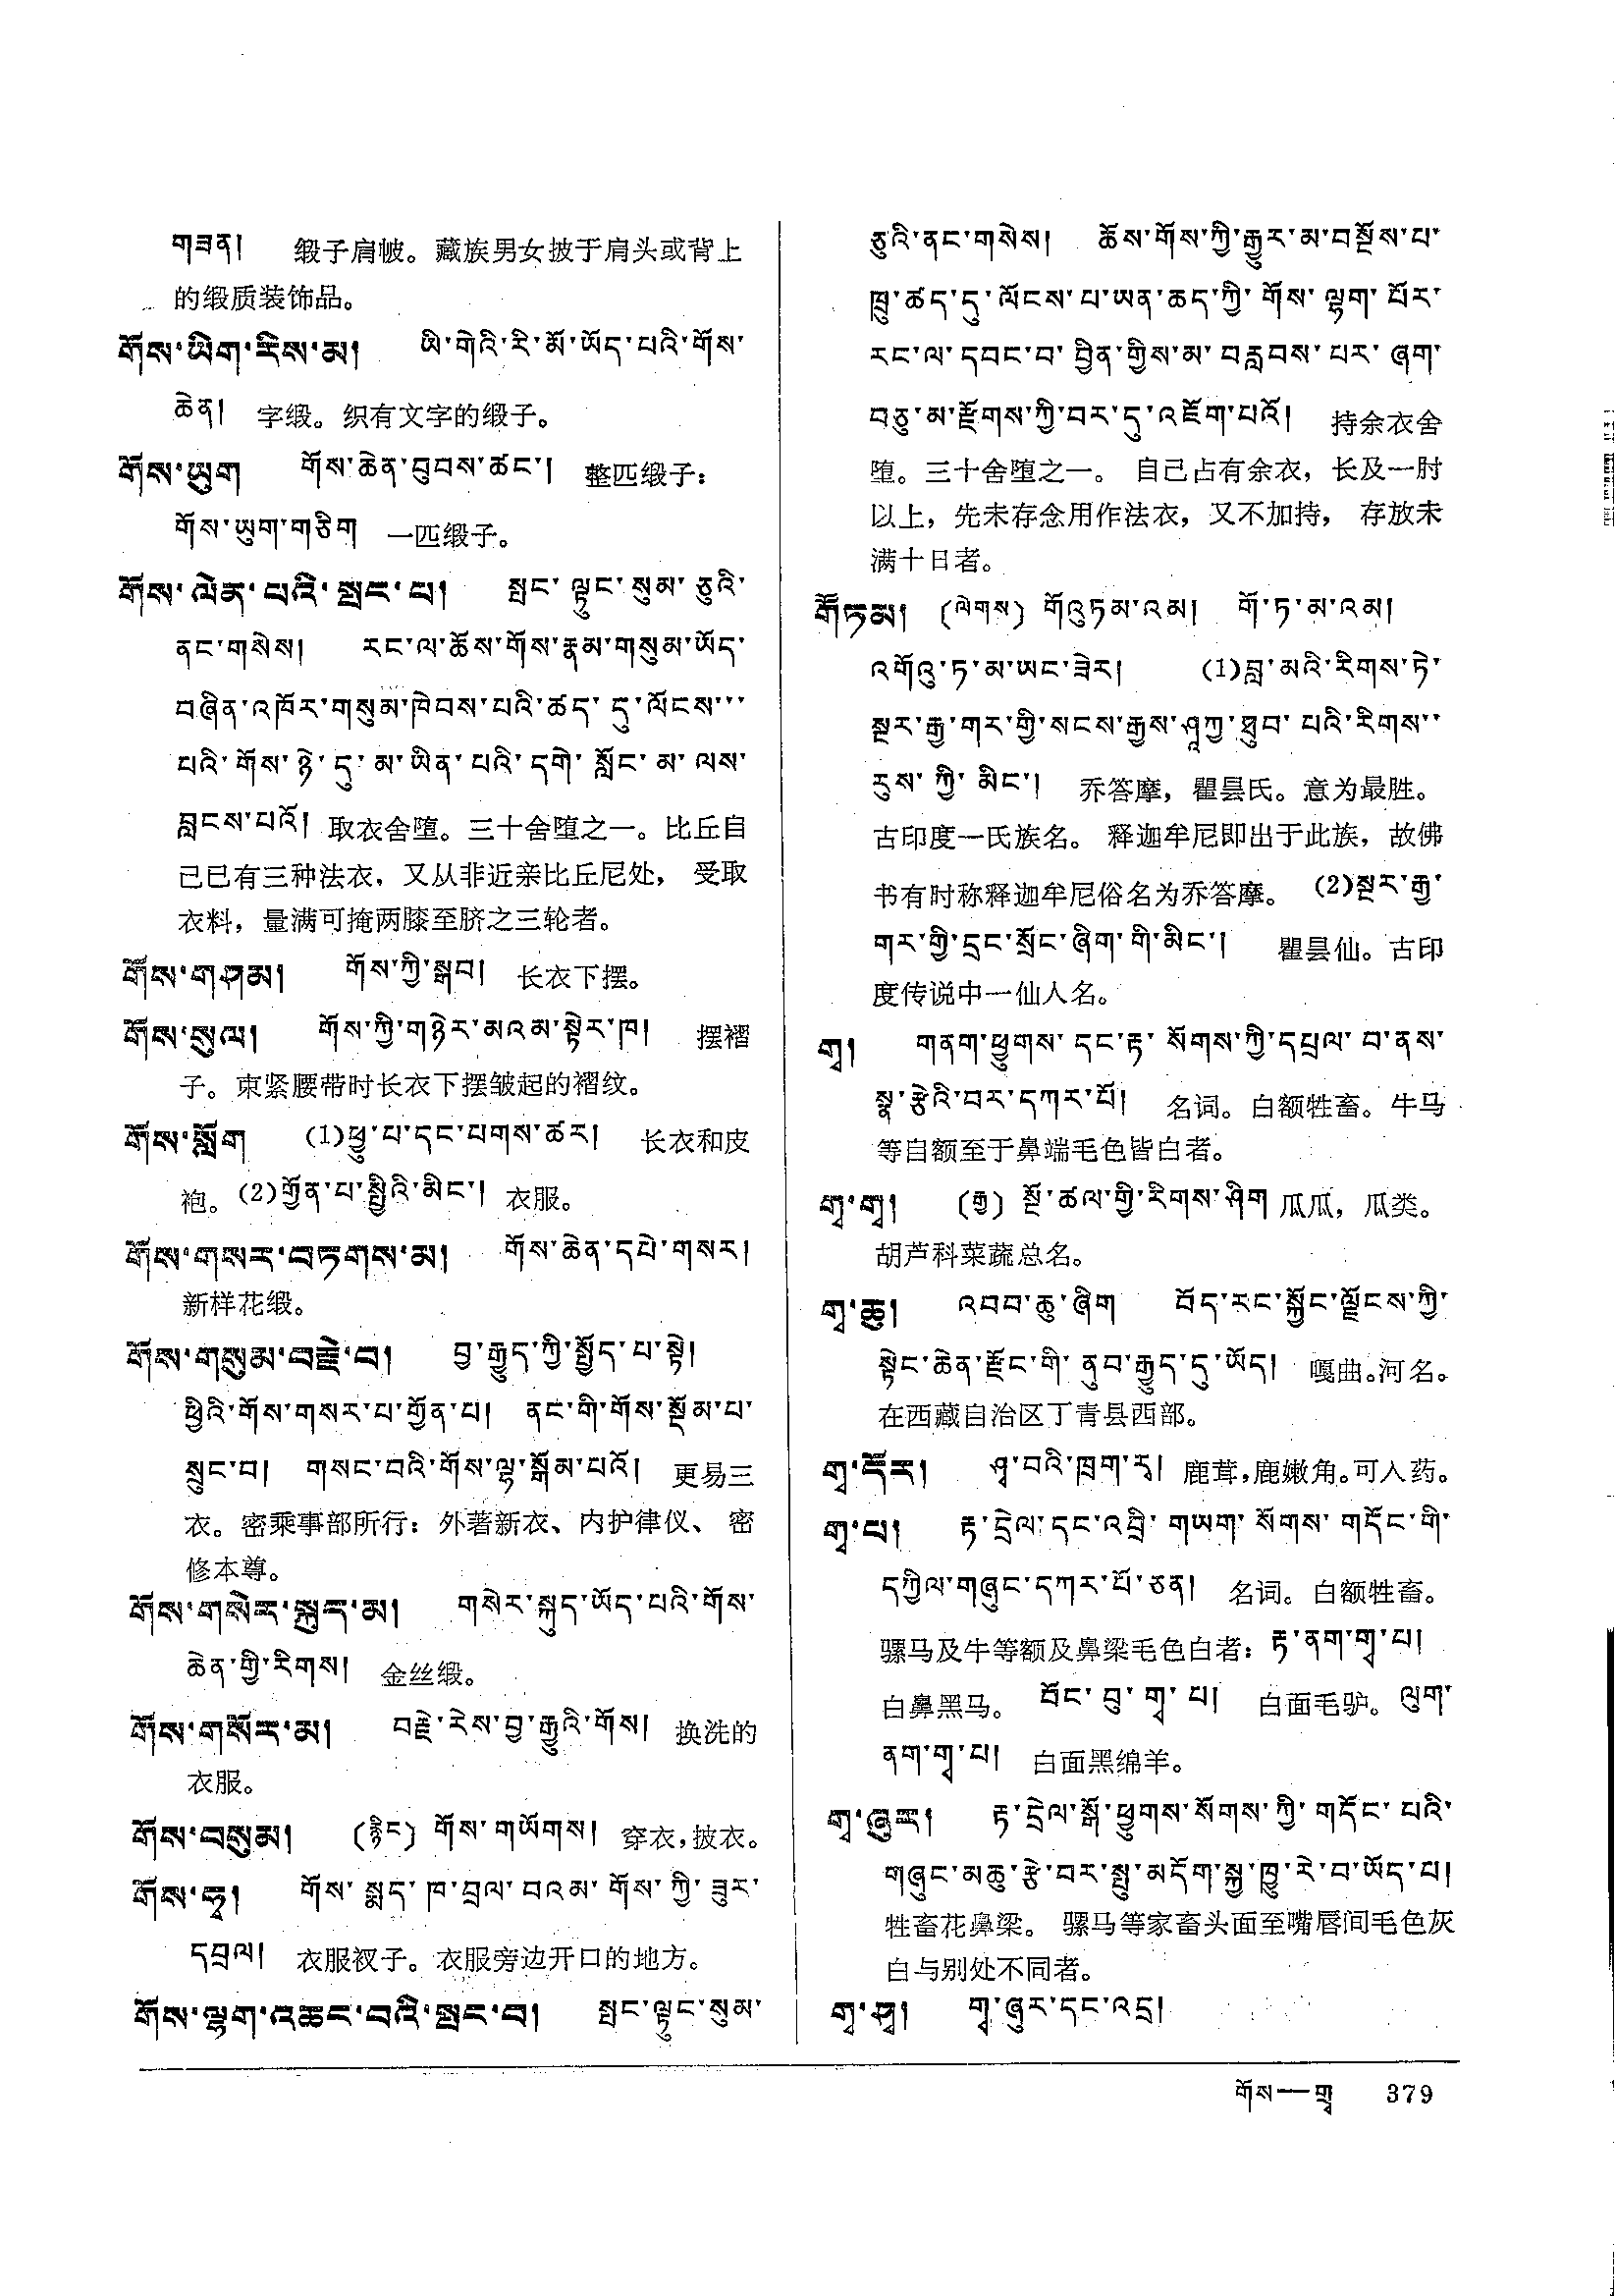 གཟན།   缎子肩帔。藏族男女披于肩头或背上
的缎质装饰品。
གོས་ཡིག་རིས་མ།   ཨི་གེའི་རི་མོ་ཡོད་པའི་གོས་
ཆེན།  字缎。织有文字的缎子。
གོས་ཡུག   གོས་ཆེན་བུབས་ཚང་།  整匹缎子：
གོས་ཡུག་གཅིག  一匹缎子。
གོས་ལེན་པའི་སྤང་པ།   སྤང་ལྟུང་སུམ་ཅུའི་
ནང་གསེས།   རང་ལ་ཆོས་གོས་རྣམ་གསུམ་ཡོད་
བཞིན་འཁོར་གསུམ་ཁེབས་པའི་ཚད་དུ་ལོངས་་་
པའི་གོས་ཉེ་དུ་མ་ཡིན་པའི་དགེ་སློང་མ་ལས་
བླངས་པའོ།  取衣舍堕。三十舍堕之一。比丘自
己已有三种法衣，又从非近亲比丘尼处， 受取
衣料，量满可掩两膝至脐之三轮者。
གོས་གཤམ།   གོས་ཀྱི་སྒབ།  长衣下摆。
གོས་སུལ།   གོས་ཀྱི་གཉེར་མའམ་སྟེར་ཁ།  摆褶
子。束紧腰带时长衣下摆皱起的褶纹。
གོས་སློག   (1)ཕྱུ་པ་དང་པགས་ཚར།  长衣和皮
袍。(2)གྱོན་པ་སྤྱིའི་མིང་།  衣服。
གོས་གསར་བཏགས་མ།   གོས་ཆེན་དཔེ་གསར།
新样花缎。
གོས་གསུམ་བརྗེ་བ།   བྱ་རྒྱུད་ཀྱི་སྤྱོད་པ་སྟེ།
ཕྱིའི་གོས་གསར་པ་གྱོན་པ།  ནང་གི་གོས་སྡོམ་པ་
སྲུང་བ།  གསང་བའི་གོས་ལྷ་སྒོམ་པའོ།  更易三
衣。密乘事部所行：外著新衣、内护律仪、 密
修本尊。
གོས་གསེར་སྐུད་མ།   གསེར་སྐུད་ཡོད་པའི་གོས་
ཆེན་གྱི་རིགས།  金丝缎。
གོས་གསོར་མ།   བརྗེ་རེས་བྱ་རྒྱུའི་གོས།  换洗的
衣服。
གོས་བསུམ།   (རྙིང) གོས་གཡོགས།  穿衣，披衣。
གོས་ཧྲ།   གོས་སྨད་ཁ་བྲལ་བའམ་གོས་ཀྱི་ཟུར་
དབྲལ།  衣服衩子。衣服旁边开口的地方。
གོས་ལྷག་འཆང་བའི་སྤང་བ།   སྤང་ལྟུང་སུམ་
ཅུའི་ནང་གསེས།  ཆོས་གོས་ཀྱི་རྒྱུར་མ་བསྔོས་པ་
ཁྲུ་ཚད་དུ་ལོངས་པ་ཡན་ཆད་ཀྱི་གོས་ལྷག་པོར་
རང་ལ་དབང་བ་བྱིན་གྱིས་མ་བརླབས་པར་ཞག་
བཅུ་མ་རྫོགས་ཀྱི་བར་དུ་འཇོག་པའོ།  持余衣舍
堕。三十舍堕之一。 自己占有余衣，长及一肘
以上，先未存念用作法衣，又不加持， 存放未
满十日者。
གོཏམ།  (ལེགས) གོའུཏམ་འམ།  གོ་ཏ་མ་འམ།
འགོའུ་ཏ་མ་ཡང་ཟེར།   (1)བླ་མའི་རིགས་ཏེ་
སྔར་རྒྱ་གར་གྱི་སངས་རྒྱས་ཤཱཀྱ་ཐུབ་པའི་རིགས་་
རུས་ཀྱི་མིང་།  乔答摩，瞿昙氏。意为最胜。
古印度一氏族名。 释迦牟尼即出于此族，故佛
书有时称释迦牟尼俗名为乔答摩。 (2)སྔར་རྒྱ་
གར་གྱི་དྲང་སྲོང་ཞིག་གི་མིང་།  瞿昙仙。古印
度传说中一仙人名。
གྭ།   གནག་ཕྱུགས་དང་རྟ་སོགས་ཀྱི་དཔྲལ་བ་ནས་
སྣ་རྩེའི་བར་དཀར་པོ།  名词。白额牲畜。牛马
等自额至于鼻端毛色皆白者。
གྭ་གྭ།   (རྒྱ) སྔོ་ཚལ་གྱི་རིགས་ཤིག 瓜瓜，瓜类。
胡芦科菜蔬总名。
གྭ་ཆུ།   འབབ་ཆུ་ཞིག  བོད་རང་སྐྱོང་ལྗོངས་ཀྱི་
སྟེང་ཆེན་རྫོང་གི་ནུབ་རྒྱུད་དུ་ཡོད།  嘎曲。河名。
在西藏自治区丁青县西部。
གྭ་དོར།   ཤྭ་བའི་ཁྲག་རྭ།  鹿茸，鹿嫩角。可入药。
གྭ་པ།   རྟ་དྲེལ་དང་འབྲི་གཡག་སོགས་གདོང་གི་
དཀྱིལ་གཞུང་དཀར་པོ་ཅན།  名词。白额牲畜。
骡马及牛等额及鼻梁毛色白者：རྟ་ནག་གྭ་པ།
白鼻黑马。 བོང་བུ་གྭ་པ།  白面毛驴。 ལུག་
ནག་གྭ་པ།  白面黑绵羊。
གྭ་ཞུར།   རྟ་དྲེལ་སྒོ་ཕྱུགས་སོགས་ཀྱི་གདོང་པའི་
གཞུང་མཆུ་རྩེ་བར་སྤུ་མདོག་སྐྱ་ཁྲུ་རེ་བ་ཡོད་པ།
牲畜花鼻梁。 骡马等家畜头面至嘴唇间毛色灰
白与别处不同者。
གྭ་ཤྭ།   གྭ་ཞུར་དང་འདྲ།
གོས—གྲྭ   379